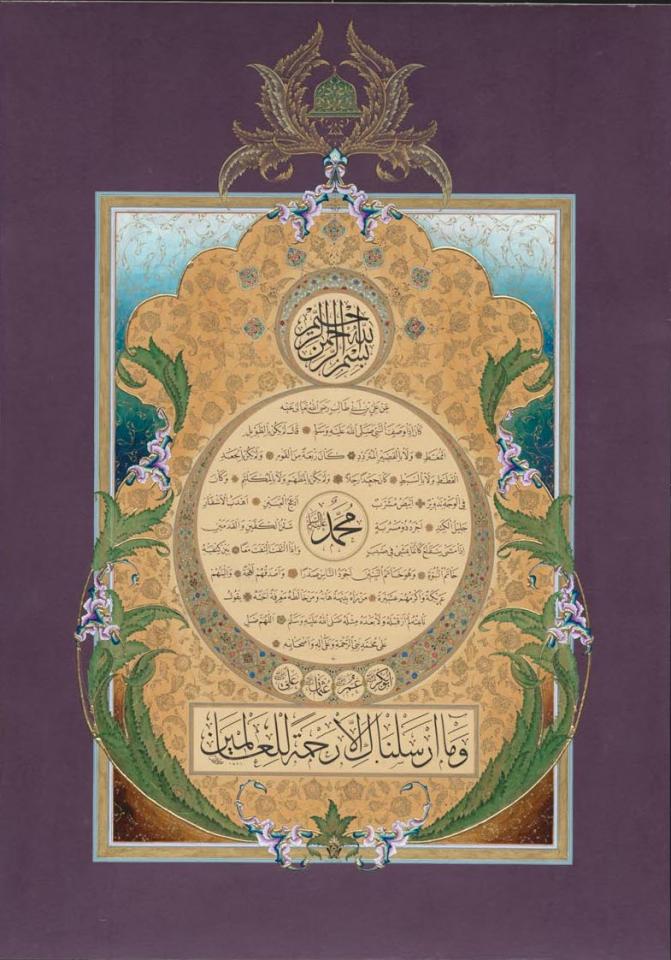 بسم الله الرحمن الرحيم
عن علي بن أبي طالب رضي الله تعالى عنه
كان إذا وصف النبي صلى الله عليه وسلم قال لم يكن بالطويل
الممغط ولا بالقصير المتردد كان ربعة من القوم ولم يكن بالجعد
القطط ولا بالسبط كان جعدا رجلا ولم يكن بالمطهم ولا بالمكلثم وكان
في الوجه تدوير أبيض مشرب أدعج العينين أهدب الأشفار
جليل الكتد أجرد ذو مسربة شثن الكفين والقدمين
محمد عليه السلام
إذا مشى تقلع كأنما يمشي في صبب وإذا التفت التفت معا بين كتفيه
خاتم النبوة وهو خاتم النبيين أجود الناس صدرا وأصدقهم لهجة وألينهم
عريكة وأكرمهم عشيرة من رآه بديهة هابه ومن خالطه معرفة أحبه يقول
ناعته لم أر قبله ولا بعده مثله صلى الله عليه وسلم اللهم صل
على محمد نبي الرحمة وعلى آله وأصحابه
أبو بكر عمر عثمان علي
وما أرسلناك إلا رحمة للعالمين